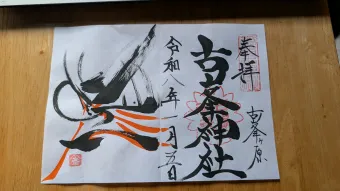 奉拝
古峯ヶ原
古峯神社
令和八年一月五日